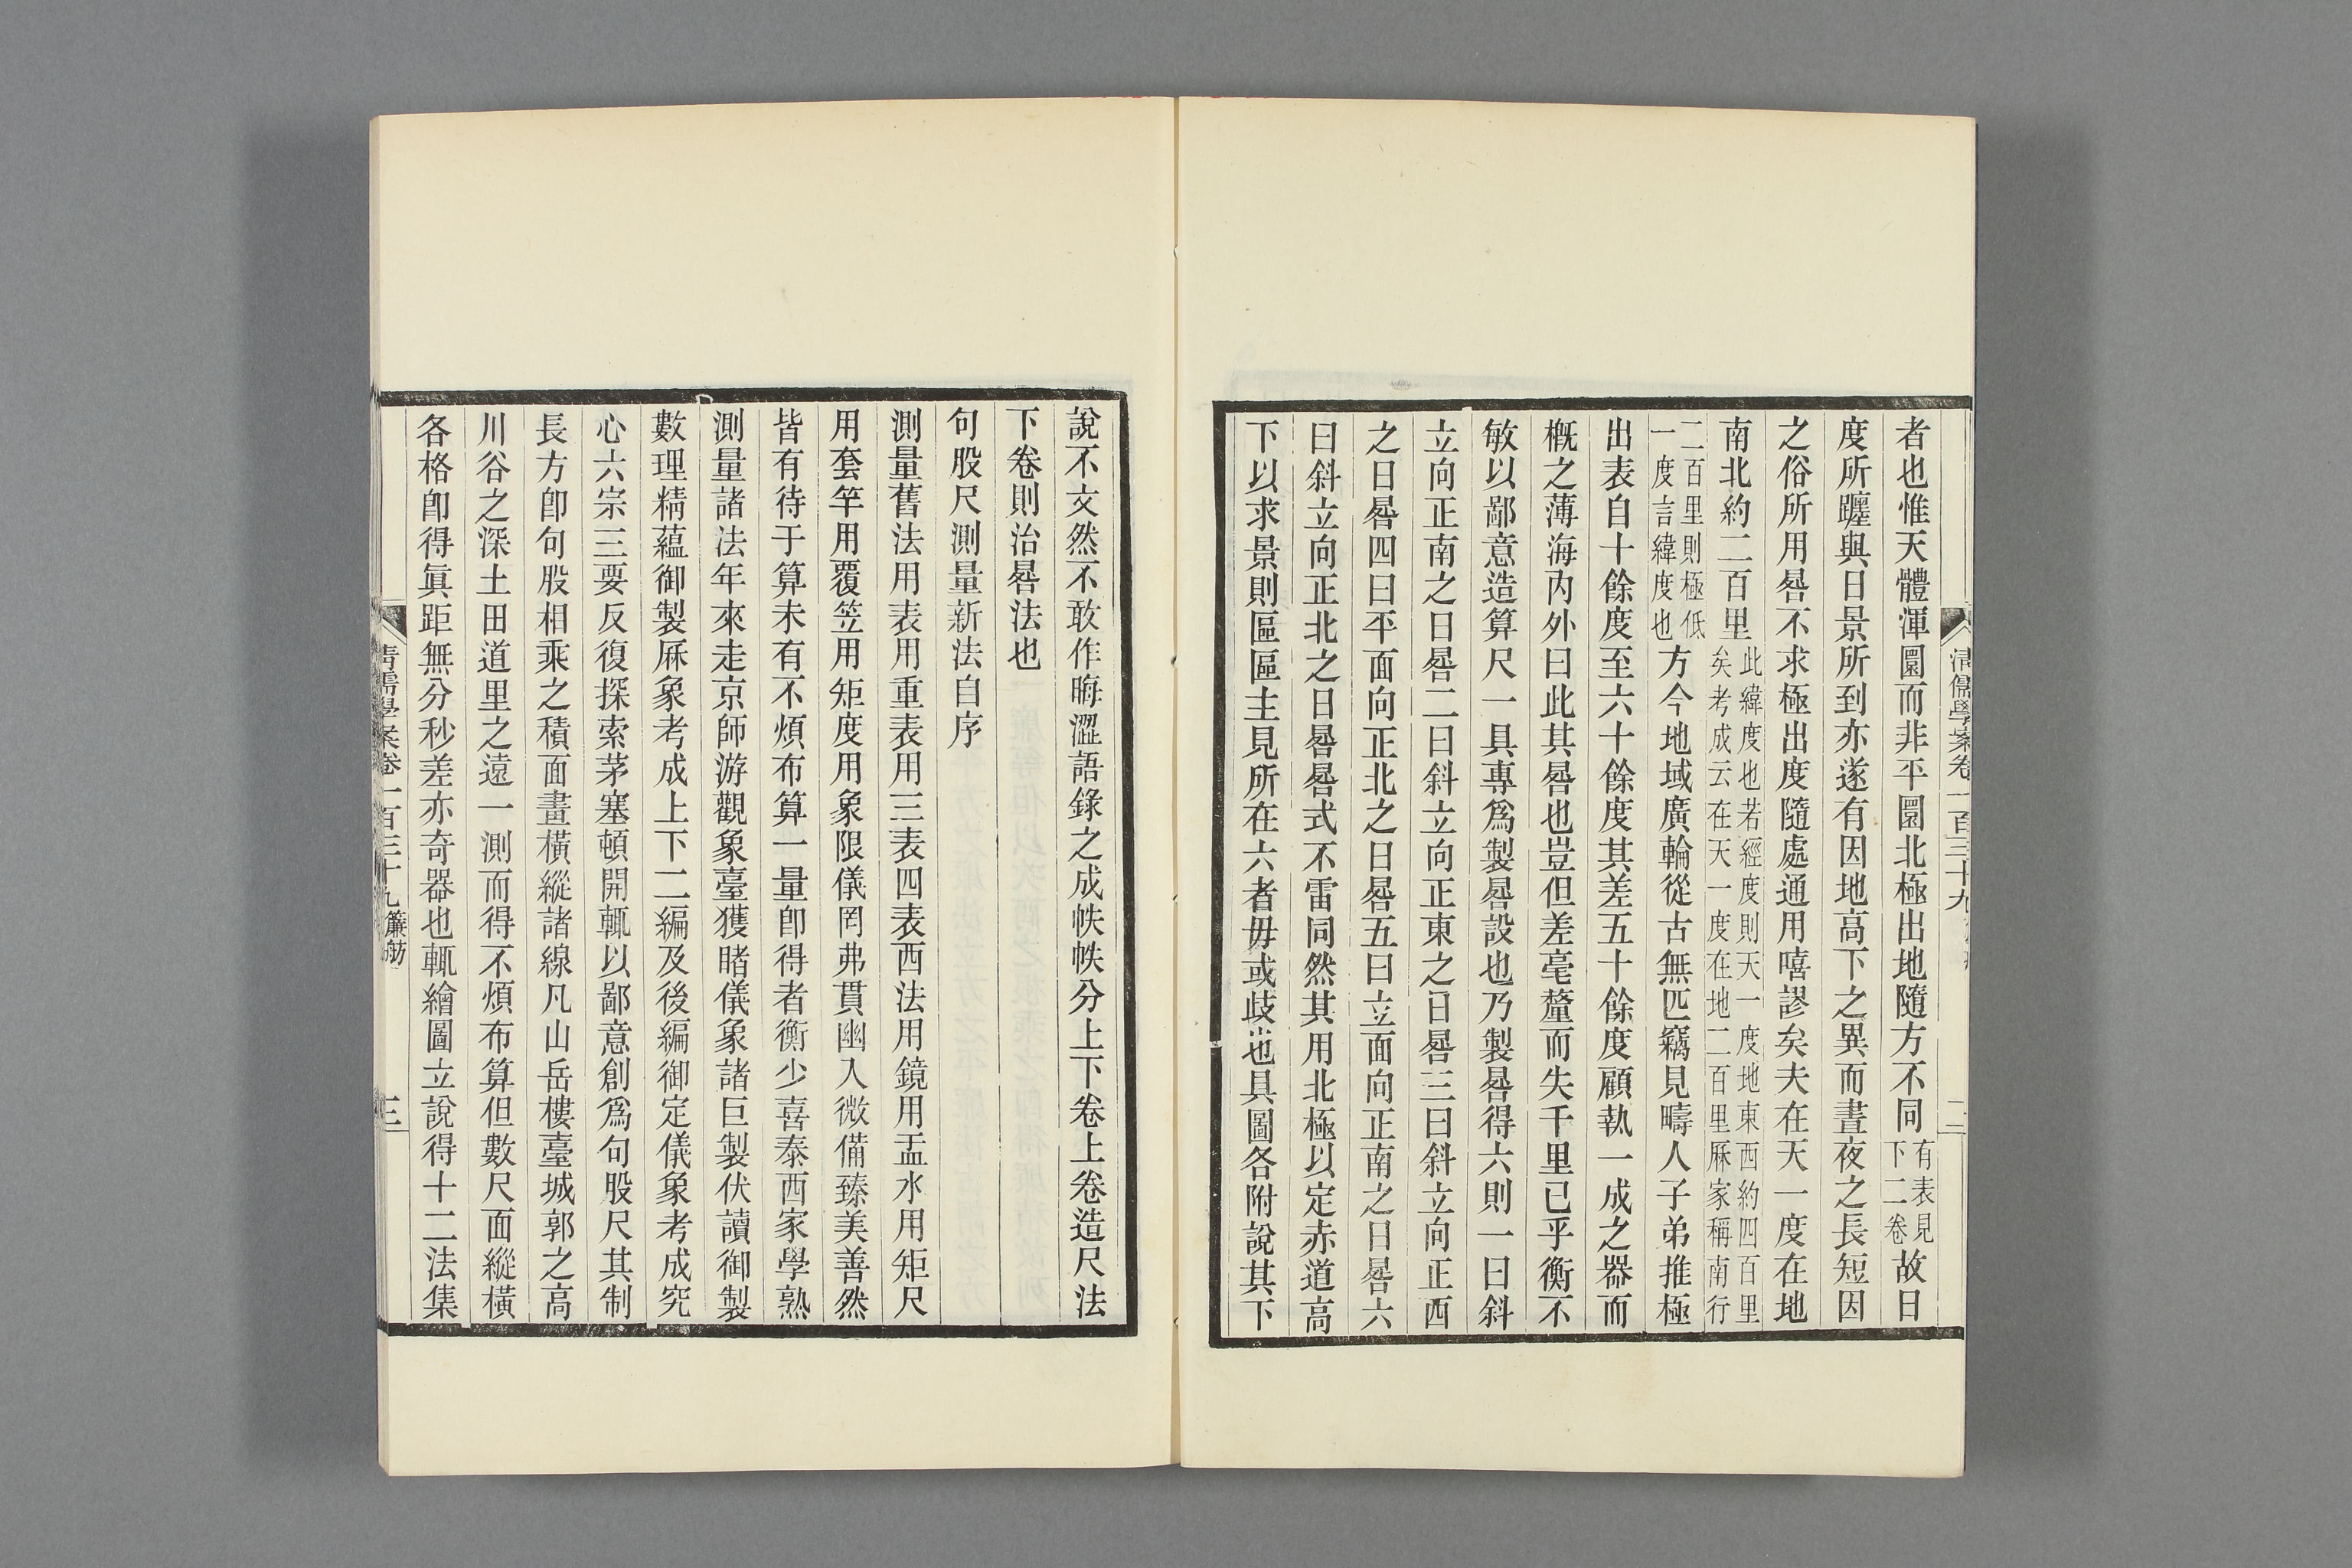 者也惟天體渾圜而非平圜北極出地隨方不同有表見下二卷故日
度所躔與日景所到亦遂有因地高下之異而晝夜之長短因
之俗所用晷不求極出度隨處通用嘻謬矣夫在天一度在地
南北約二百里此緯度也若經度則天一度地東西約四百里矣考成云在天一度在地二百里厤家稱南行
二百里則極低一度言緯度也方今地域廣輪從古無匹竊見疇人子弟推極
出表自十餘度至六十餘度其差五十餘度顧執一成之器而
概之薄海内外曰此其晷也豈但差毫釐而失千里已乎衡不
敏以鄙意造算尺一具專爲製晷設也乃製晷得六則一曰斜
立向正南之日晷二曰斜立向正東之日晷三曰斜立向正西
之日晷四曰平面向正北之日晷五曰立面向正南之日晷六
曰斜立向正北之日晷晷式不雷同然其用北極以定赤道高
下以求景則區區主見所在六者毋或歧也具圖各附說其下
清儒學案卷一百三十九
二
說不文然不敢作晦澀語錄之成帙帙分上下卷上卷造尺法
下卷則治晷法也
句股尺測量新法自序
測量舊法用表用重表用三表四表西法用鏡用盂水用矩尺
用套竿用覆笠用矩度用象限儀罔弗貫幽入微備臻美善然
皆有待于算未有不煩布算一量卽得者衡少喜泰西家學熟
測量諸法年來走京師游觀象臺獲睹儀象諸巨製伏讀御製
數理精蘊御製厤象考成上下二編及後編御定儀象考成究
心六宗三要反復探索茅塞頓開輒以鄙意創爲句股尺其制
長方卽句股相乘之積面畫橫縱諸線凡山岳樓臺城郭之高
川谷之深土田道里之遠一測而得不煩布算但數尺面縱橫
各格卽得眞距無分秒差亦奇器也輒繪圖立說得十二法集
清儒學案卷一百三十九 簾舫
三